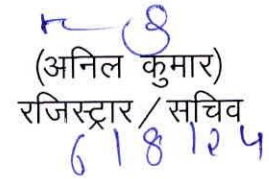 (अनिल कुमार)
रजिस्ट्रार / सचिव
6/8/24